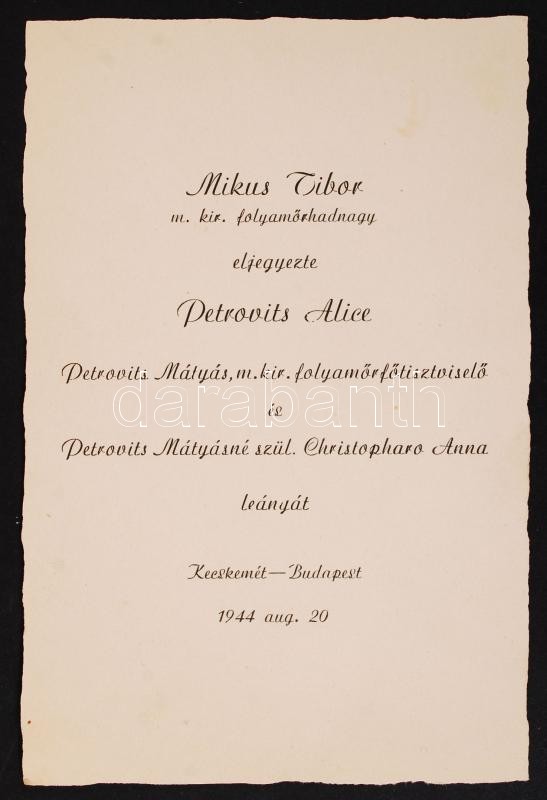 Mikus Tibor
m. kir. folyamőrhadnagy
eljegyezte
Petrovits Alice
Petrovits Mátyás, m. kir. folyamőrfőtisztviselő
darabanth
és
Petrovits Mátyásné szül. Christopharo Anna
leányát
Kecskemét—Budapest
1944 aug. 20